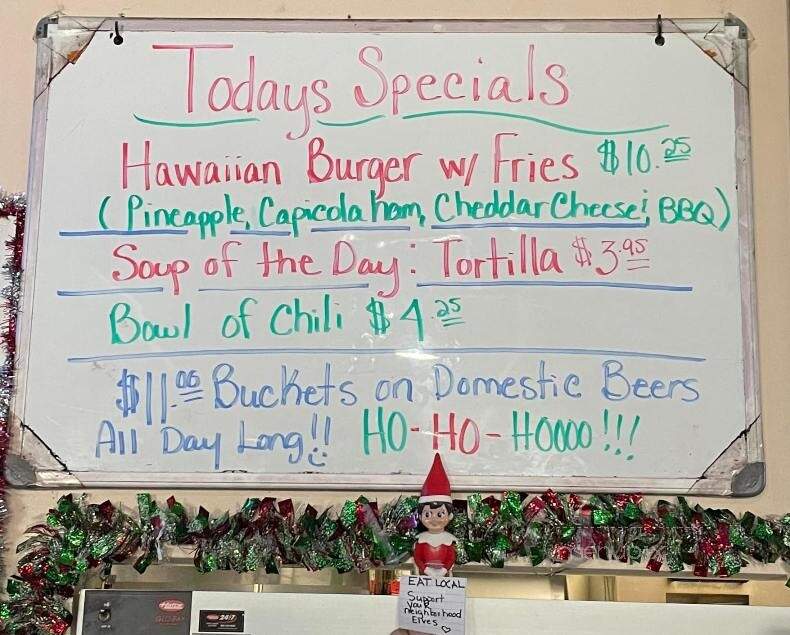 Todays Specials
Hawaiian Burger w/ Fries $10.25
(Pineapple, Capicola ham, Cheddar Cheese; BBQ)
Soup of the Day: Tortilla $3.95
Bowl of Chili $4.25
$11.06 Buckets on Domestic Beers
All Day Long!! HO-HO-HOOOO!!!
EAT LOCAL
Support
your
neighborhood
Elves
Hatco
GLO-RAY
24/7